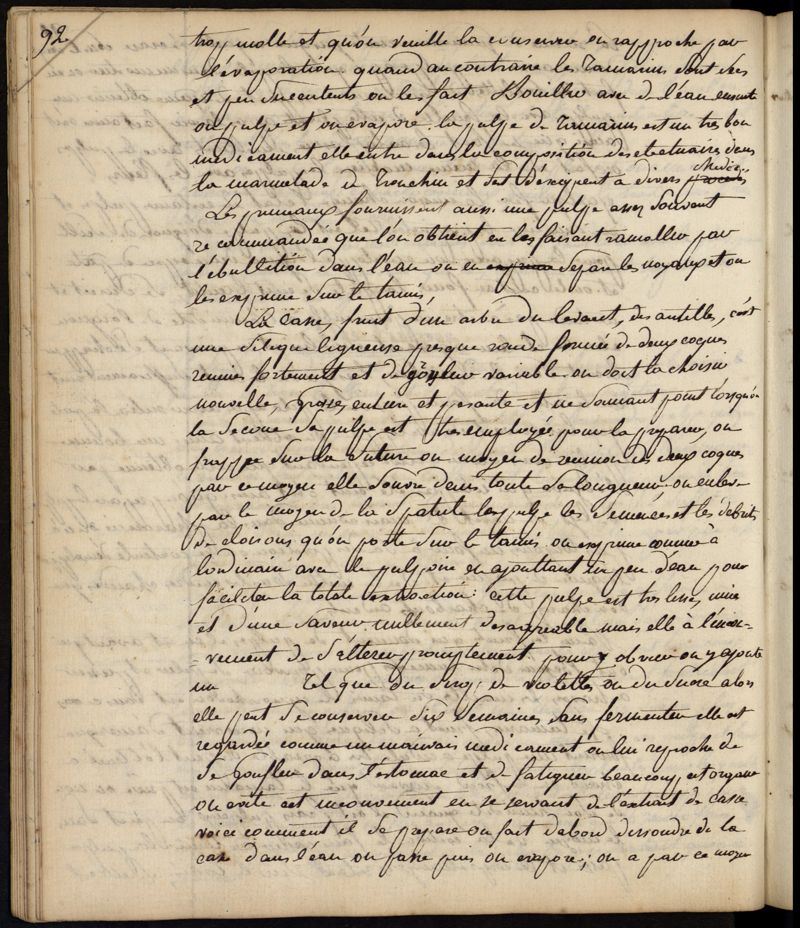 92
trop molle et qu'on veuille la conserver on rapproche par
l'évaporation. quand au contraire les Tamarins sont secs
et peu succulents on les fait Bouillir avec de l'eau ensuite
on pulpe et on evapore. la pulpe de Tamarins est un tres bon
médicament elle entre dans la composition des electuaires, dans
la marmelade de Tronchin et sert d'éxcipient a divers Medic.
Les pruneaux fournissent aussi une pulpe assez souvent
recommandée que l'on obtient en les faisant ramollir par
l'ébullition dans l'eau on en separe les noyaux et on
les exprime sur le tamis,
La Casse, fruit d'un arbre du levant, des antilles, c'est
une silique ligneuse presque ronde formée de deux coques
reunies fortement et de grosseur variable on doit la choisir
nouvelle, Grosse, entiere et pesante et ne sonnant point lorsqu'on
la secoue sa pulpe est tres employée pour la preparer, on
frappe sur la suture ou moyen de reunion des deux coques
par ce moyen elle s'ouvre dans toute sa longueur on enleve
par le moyen de la spatule la pulpe les semences et les debris
de cloisons qu'on porte sur le tamis on exprime comme à
lordinaire avec le pulpoire en ajouttant un peu d'eau pour
faciliter la totale extraction: cette pulpe est tres
et d'une saveur nullement desagreable mais elle à l'incon-
-venient de s'altérer promptement pour y obvier on y ajoute
un Tel que du sirop de violettes ou du sucre alors
elle peut se conserver six semaines sans fermenter elle est
regardée comme un mauvais medicament on lui reproche de
de gonfler dans l'estomac et de fatiguer beaucoup cet organe
on evite cet inconvenient en se servant de l'extrait de casse
voici comment il se prepare on fait dabord dissoudre de la
casse dans l'eau on passe puis on evapore; on a par ce moyen